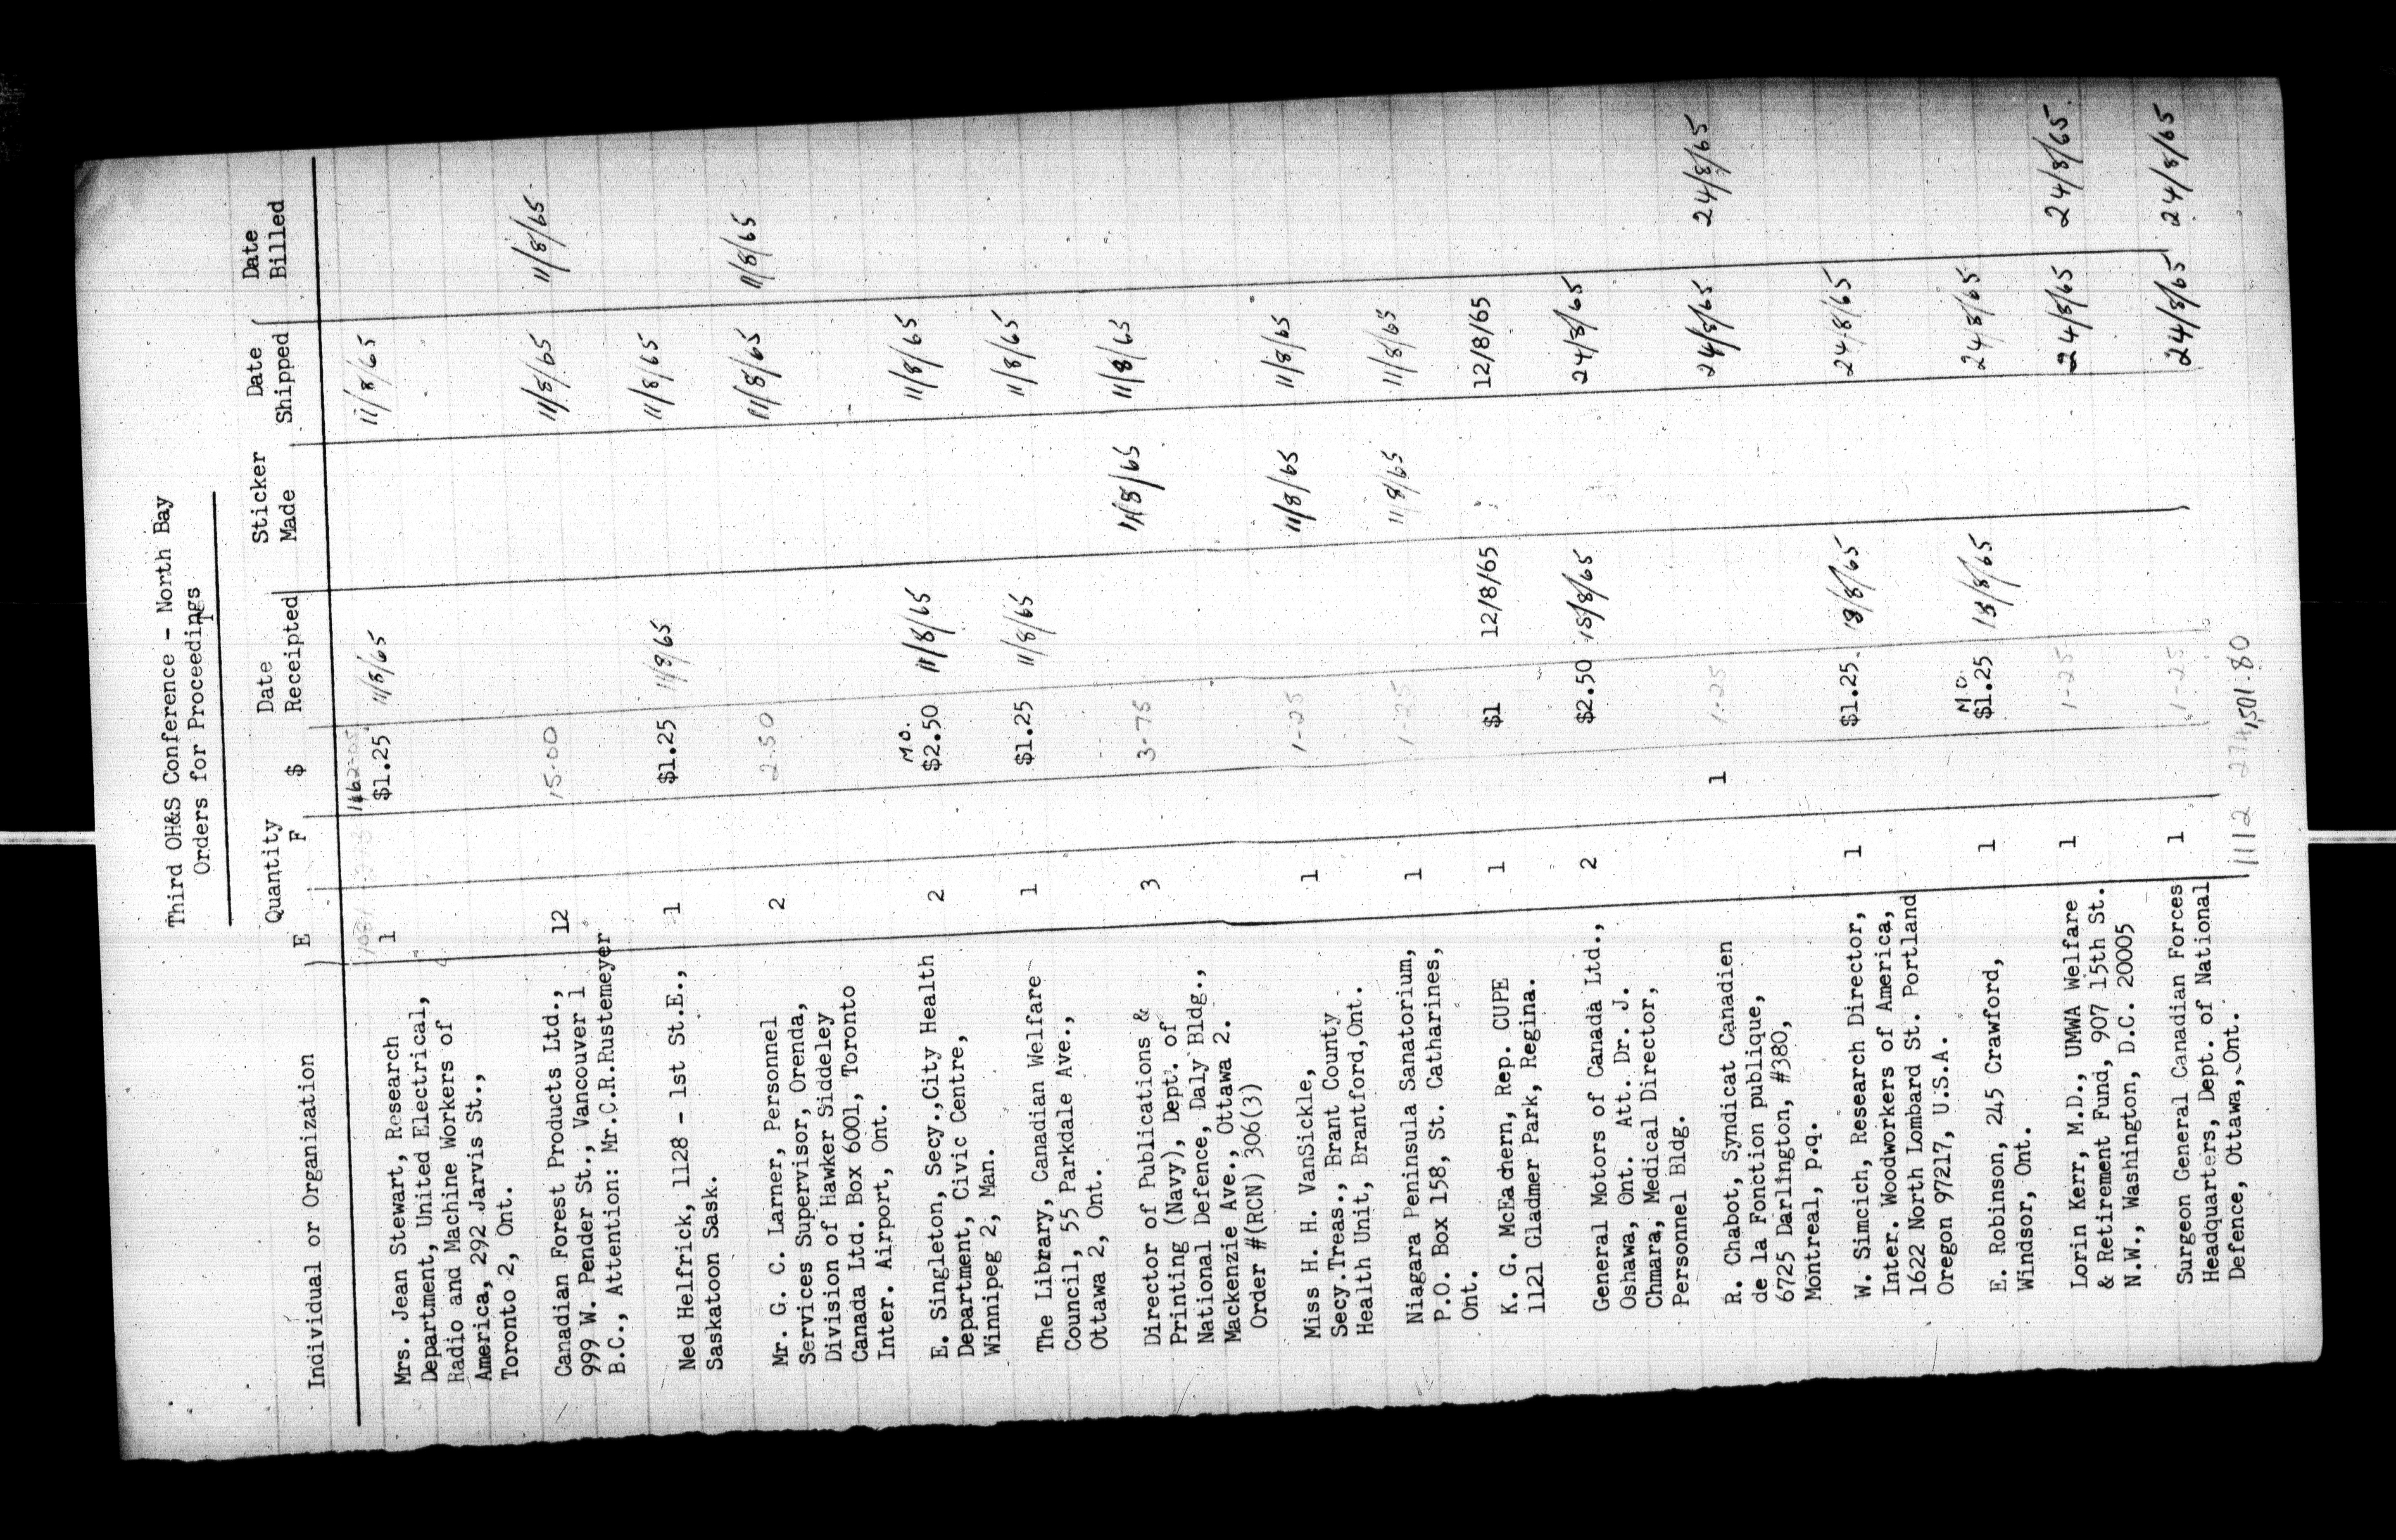 Third OH&S Conference - North Bay
Orders for Proceedings
Individual or Organization Quantity E F $ Date Receipted Sticker Made Date Shipped Date Billed
Mrs. Jean Stewart, Research 1 $1.25 11/8/65 11/8/65
Department, United Electrical,
Radio and Machine Workers of
America, 292 Jarvis St.,
Toronto 2, Ont.
Canadian Forest Products Ltd., 12 15.00 11/8/65 11/8/65
999 W. Pender St., Vancouver 1
B.C., Attention: Mr.C.R.Rustemeyer
Ned Helfrick, 1128 - 1st St.E., 1 $1.25 11/8/65 11/8/65
Saskatoon Sask.
Mr. G. C. Larner, Personnel 2 2.50 11/8/65 11/8/65
Services Supervisor, Orenda,
Division of Hawker Siddeley
Canada Ltd. Box 6001, Toronto
Inter. Airport, Ont.
M.O.
E. Singleton, Secy.,City Health 2 $2.50 11/8/65 11/8/65
Department, Civic Centre,
Winnipeg 2, Man.
The Library, Canadian Welfare 1 $1.25 11/8/65 11/8/65
Council, 55 Parkdale Ave.,
Ottawa 2, Ont.
Director of Publications & 3 3-75 11/8/65 11/8/65
Printing (Navy), Dept. of
National Defence, Daly Bldg.,
Mackenzie Ave., Ottawa 2.
Order #(RCN) 306(3)
Miss H. H. VanSickle, 1 1-25 11/8/65 11/8/65
Secy.Treas., Brant County
Health Unit, Brantford,Ont.
Niagara Peninsula Sanatorium, 1 1-25 11/8/65 11/8/65
P.O. Box 158, St. Catharines,
Ont.
K. G. McEachern, Rep. CUPE 1 $1 12/8/65 12/8/65
1121 Gladmer Park, Regina.
General Motors of Canada Ltd., 2 $2.50 18/8/65 24/8/65
Oshawa, Ont. Att. Dr. J.
Chmara, Medical Director,
Personnel Bldg.
R. Chabot, Syndicat Canadien 1 1-25 24/8/65 24/8/65
de la Fonction publique,
6725 Darlington, #380,
Montreal, p.q.
W. Simcich, Research Director, 1 $1.25 18/8/65 24/8/65
Inter. Woodworkers of America,
1622 North Lombard St. Portland
Oregon 97217, U.S.A.
M.O.
E. Robinson, 245 Crawford, 1 $1.25 18/8/65 24/8/65
Windsor, Ont.
Lorin Kerr, M.D., UMWA Welfare 1 1-25 24/8/65 24/8/65
& Retirement Fund, 907 15th St.
N.W., Washington, D.C. 20005
Surgeon General Canadian Forces 1 1-25 24/8/65 24/8/65
Headquarters, Dept. of National
Defence, Ottawa, Ont.
1112